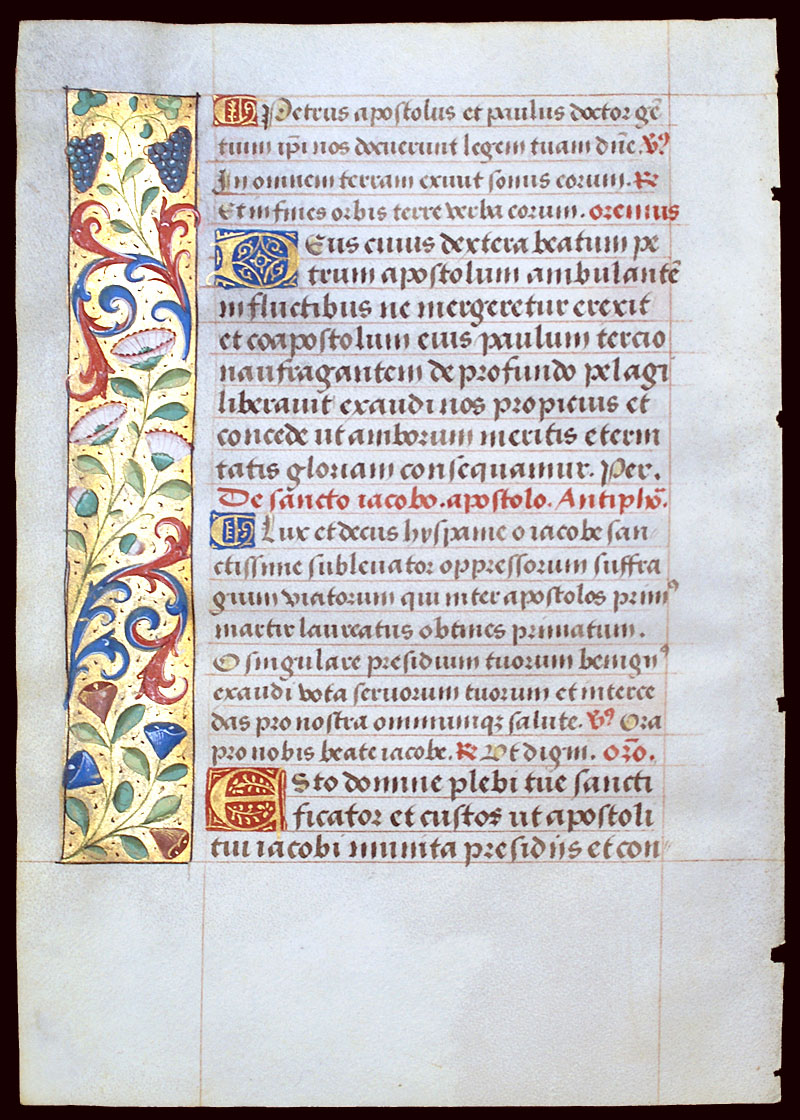 Petrus apostolus et paulus doctor gē
tium ip̄i nos docuerunt legem tuam dn̄e. ℣
In omnem terram exiuit sonus eorum. ℟
Et in fines orbis terre verba eorum. oremus
Deus cuius dextera beatum pe
trum apostolum ambulantē
in fluctibus ne mergeretur erexit
et coapostolum eius paulum tercio
naufragantem de profundo pelagi
liberauit exaudi nos propicius et
concede ut amborum meritis eterni
tatis gloriam consequamur. Per.
De sancto iacobo. apostolo. Antiphō.
Lux et decus hyspanie o iacobe san
ctissime subleuator oppressorum suffra
gium viatorum qui inter apostolos primꝰ
martir laureatus obtines primatum.
O singulare presidium tuorum benignꝰ
exaudi vota seruorum tuorum et interce
das pro nostra omniumqꝫ salute. ℣ Ora
pro nobis beate iacobe. ℟ Vt digni. oro̅.
Esto domine plebi tue sancti
ficator et custos ut apostoli
tui iacobi munita presidiis et con〃